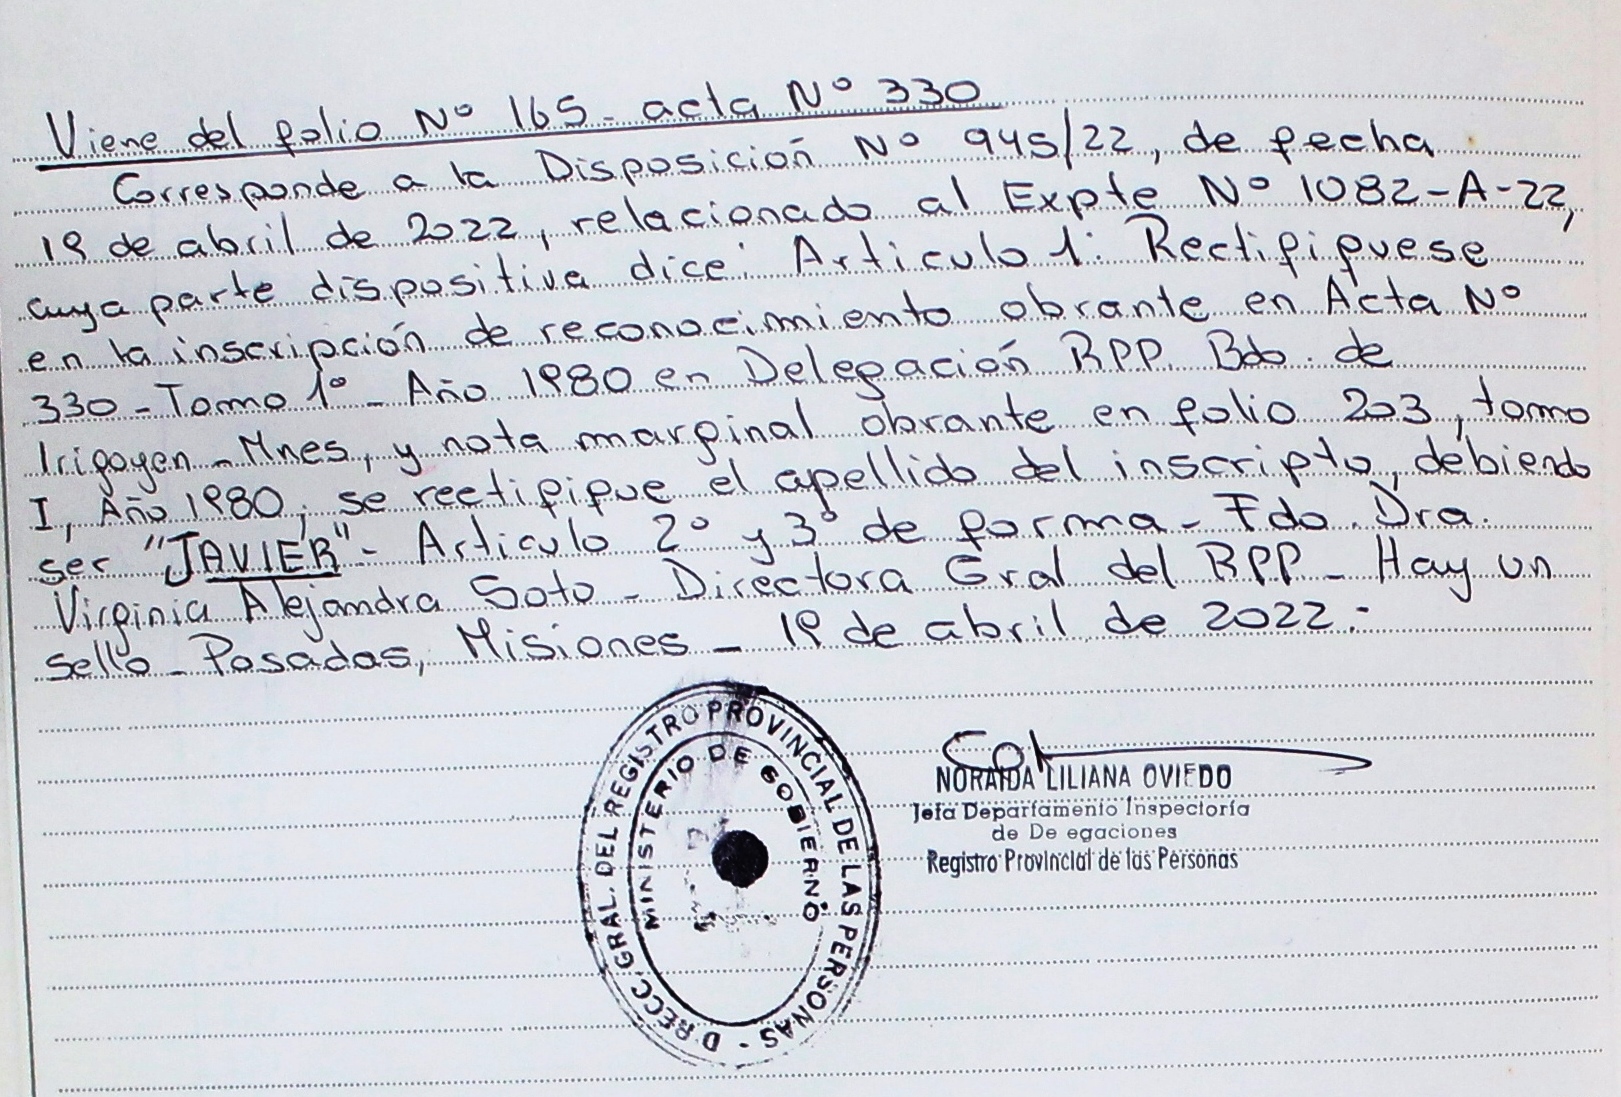 Viene del folio Nº 165 - acta Nº 330
Corresponde a la Disposición Nº 945/22, de fecha
19 de abril de 2022, relacionado al Expte Nº 1082-A-22,
cuya parte dispositiva dice: Articulo 1: Rectifiquese
en la inscripción de reconocimiento obrante en Acta Nº
330 - Tomo 1º - Año 1980 en Delegación RPP. Bdo. de
Irigoyen - Mnes, y nota marginal obrante en folio 203, tomo
I, Año 1980, se rectifique el apellido del inscripto, debiendo
ser "JAVIER" - Articulo 2º y 3º de forma - Fdo. Dra.
Virginia Alejandra Soto - Directora Gral del RPP - Hay un
sello - Posadas, Misiones - 19 de abril de 2022.-
DRECC. GRAL. DEL REGISTRO PROVINCIAL DE LAS PERSONAS -
MINISTERIO DE GOBIERNO
NORAIDA LILIANA OVIEDO
Jefa Departamento Inspectoría
de De egaciones
Registro Provincial de las Personas